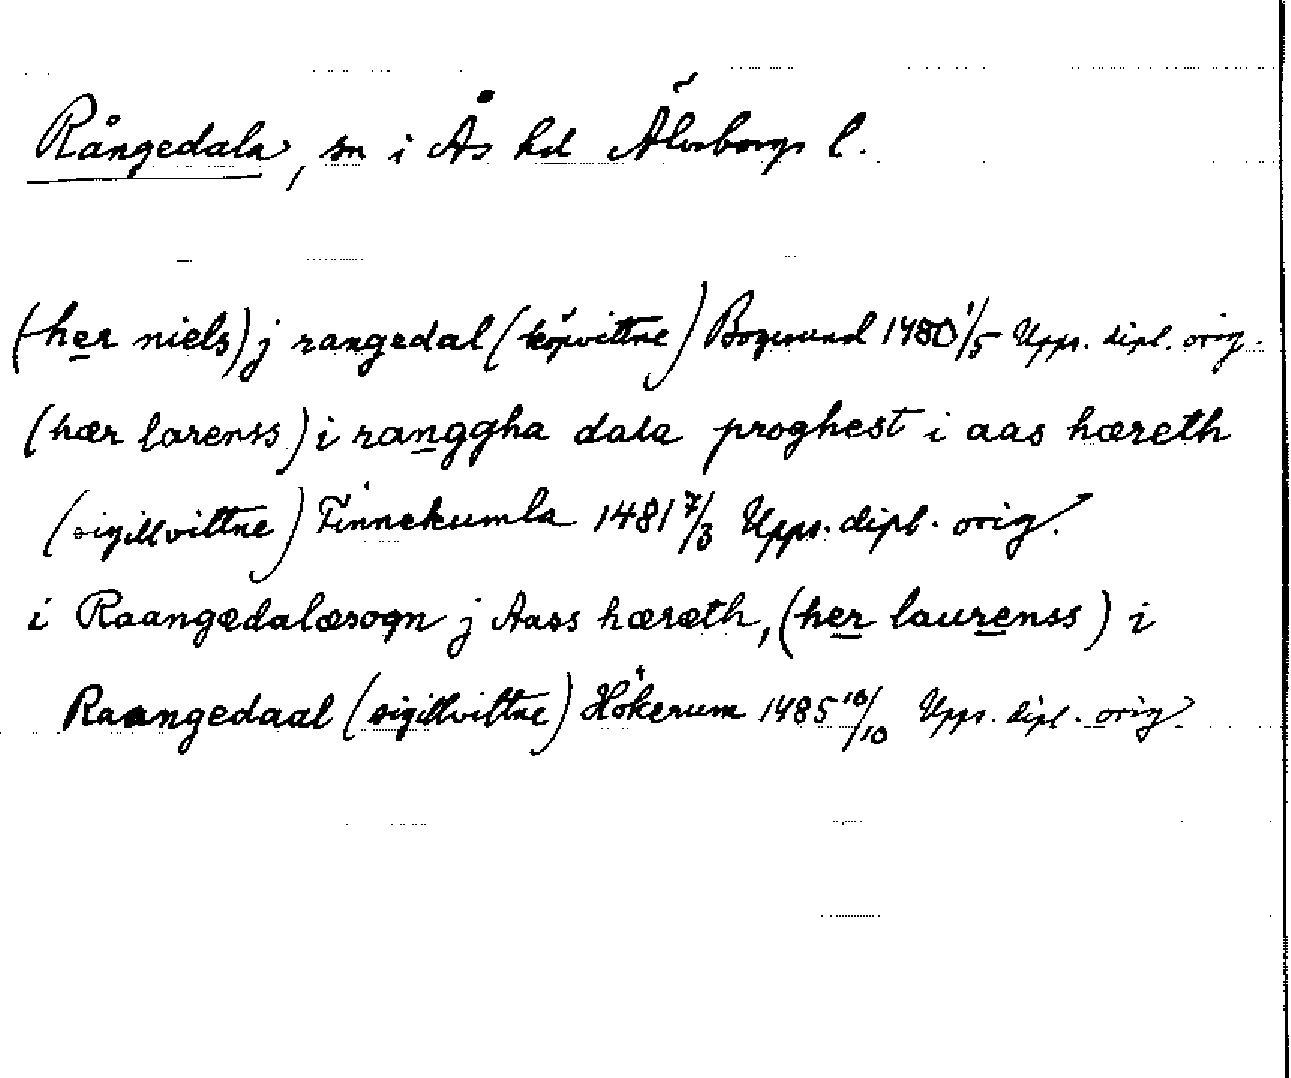 Rångedala, sn i Ås hd Älvsborgs l.
(her niels) j rangedal (köpvittne) Bogesund 1480 1/5 Upps. dipl. orig.
(hær larenss) i ranggha dala proghest i aas hæreth
(sigillvittne) Finnekumla 1481 7/3 Upps. dipl. orig.
i Raangædalæsogn j Aass hæræth, (her laurenss) i
Raangedaal (sigillvittne) Hökerum 1485 10/10 Upps. dipl. orig.